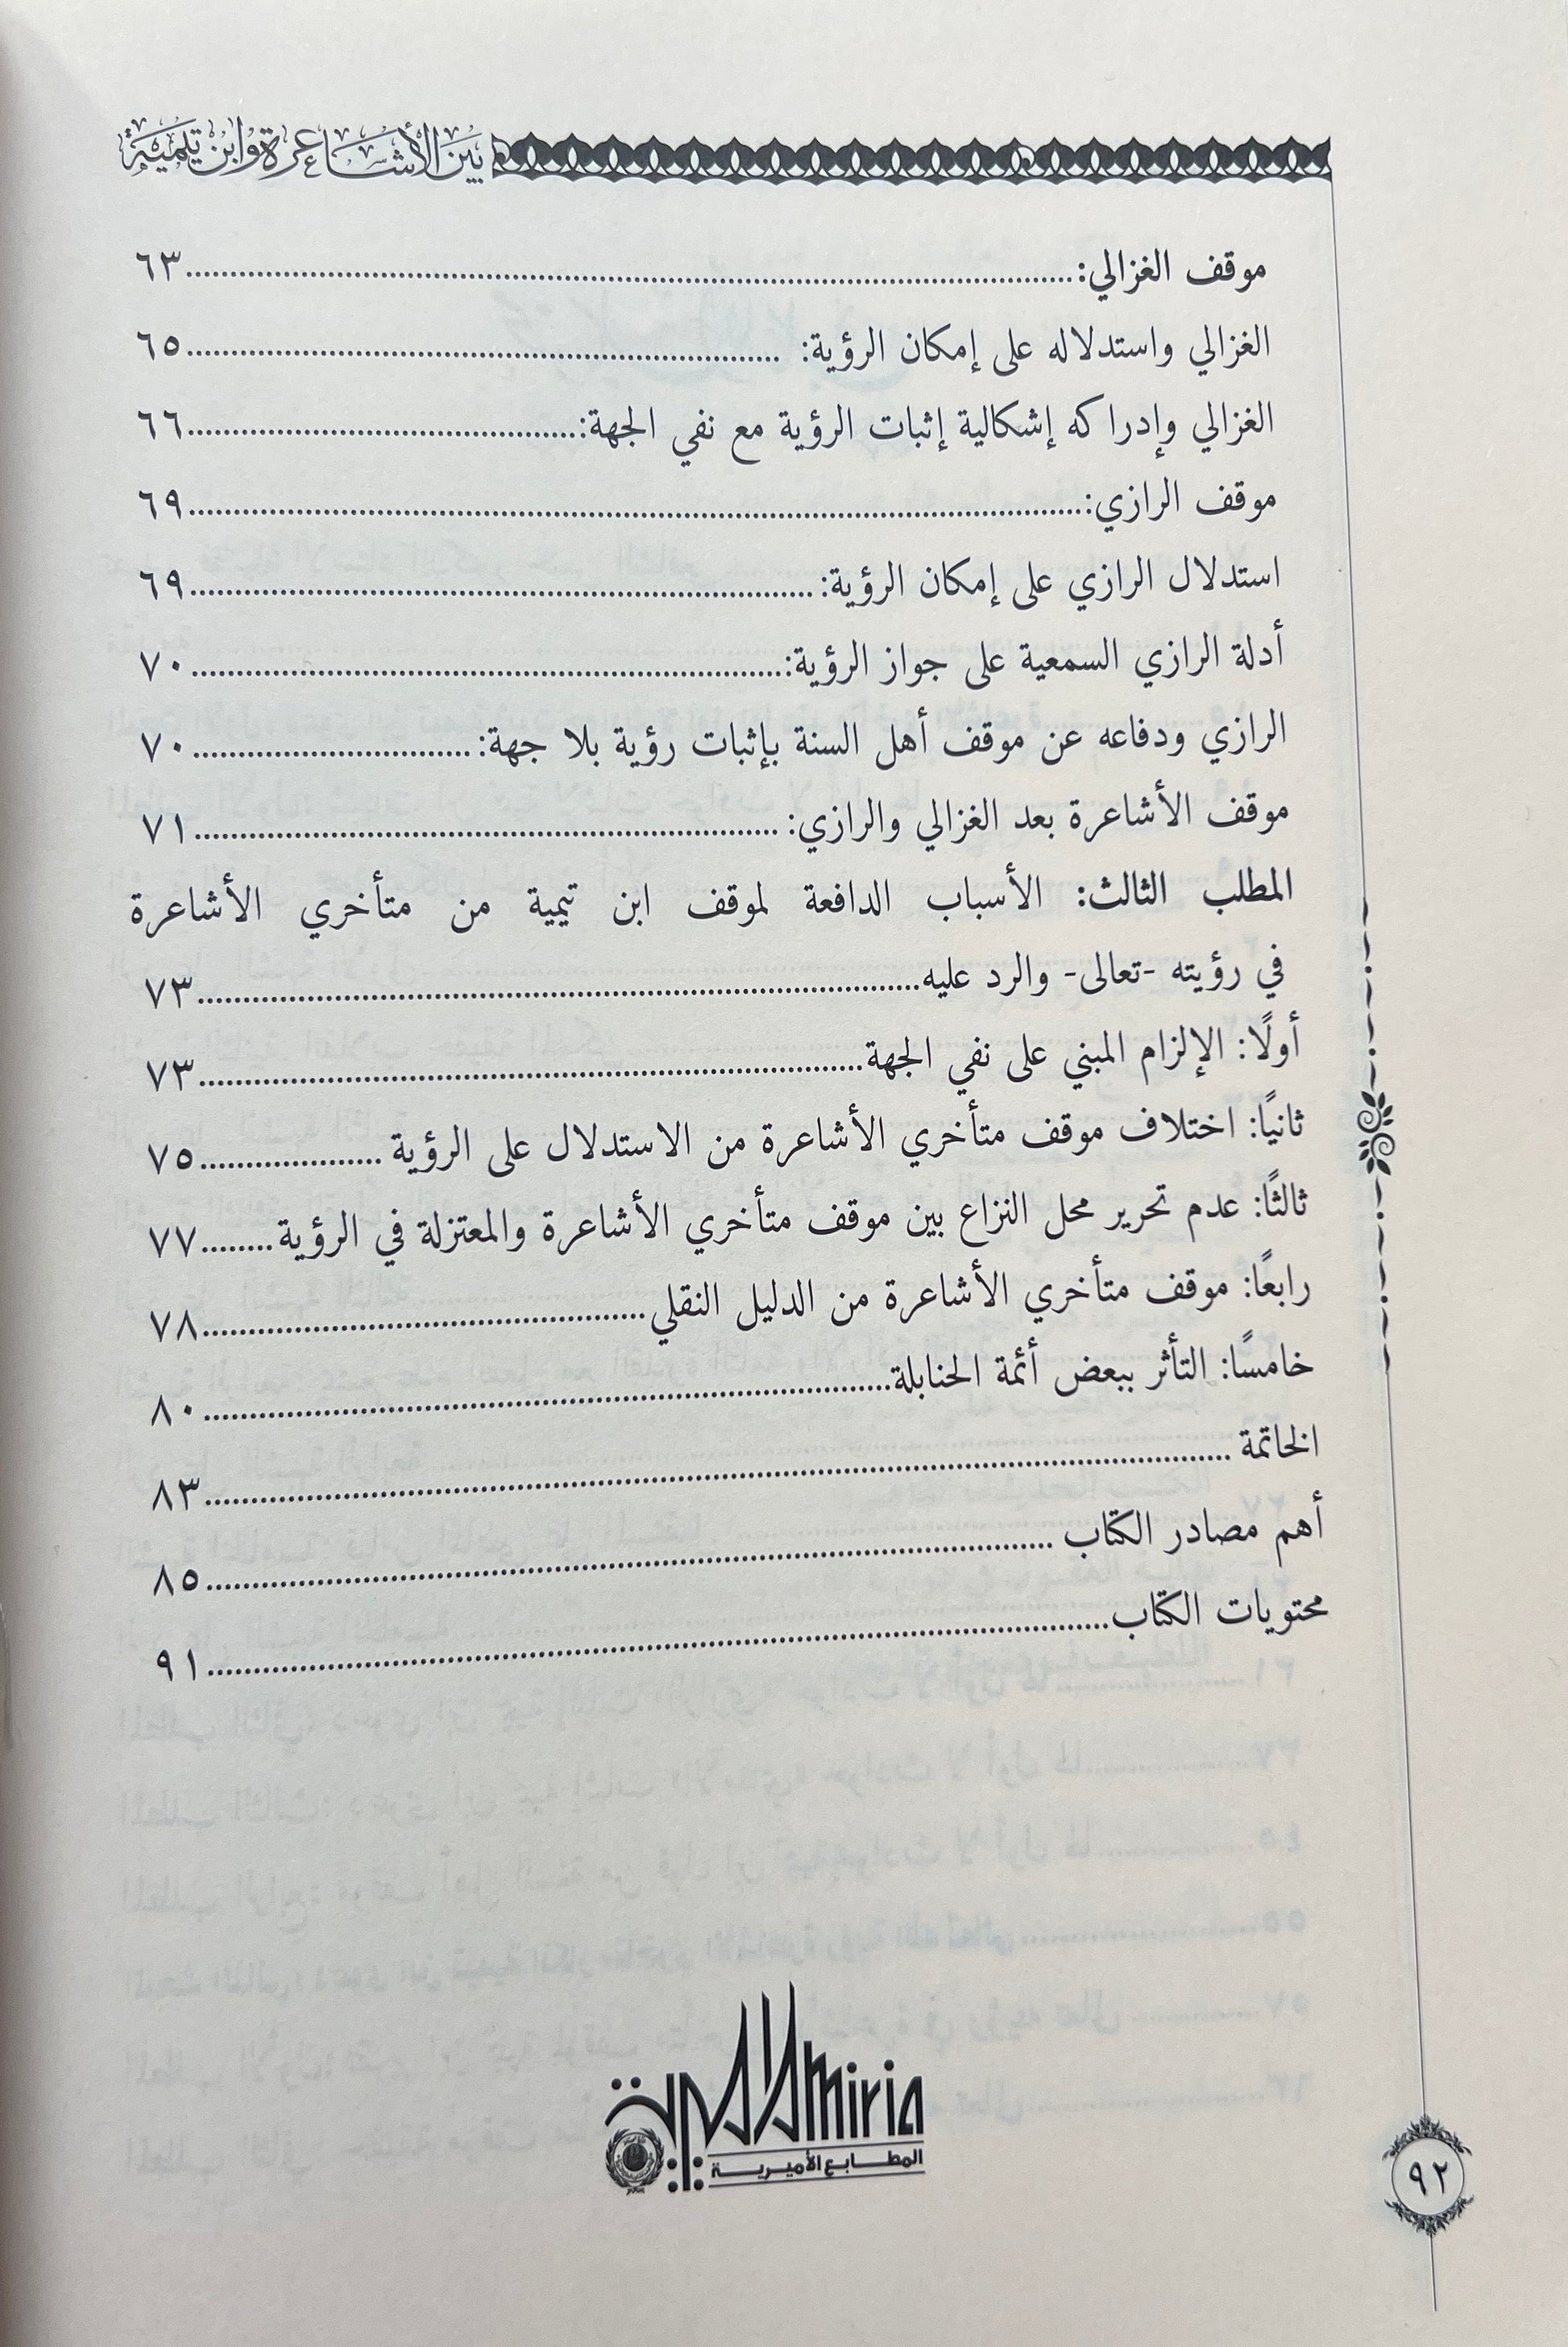 بين الأشاعرة وابن تيمية
موقف الغزالي:..........٦٣
الغزالي واستدلاله على إمكان الرؤية: ..........٦٥
الغزالي وإدراكه إشكالية إثبات الرؤية مع نفي الجهة:..........٦٦
موقف الرازي:..........٦٩
استدلال الرازي على إمكان الرؤية:..........٦٩
أدلة الرازي السمعية على جواز الرؤية:..........٧٠
الرازي ودفاعه عن موقف أهل السنة بإثبات رؤية بلا جهة:..........٧٠
موقف الأشاعرة بعد الغزالي والرازي:..........٧١
المطلب الثالث: الأسباب الدافعة لموقف ابن تيمية من متأخري الأشاعرة
في رؤيته -تعالى- والرد عليه..........٧٣
أولًا: الإلزام المبني على نفي الجهة..........٧٣
ثانيًا: اختلاف موقف متأخري الأشاعرة من الاستدلال على الرؤية ..........٧٥
ثالثًا: عدم تحرير محل النزاع بين موقف متأخري الأشاعرة والمعتزلة في الرؤية........٧٧
رابعًا: موقف متأخري الأشاعرة من الدليل النقلي..........٧٨
خامسًا: التأثر ببعض أئمة الحنابلة..........٨٠
الخاتمة ..........٨٣
أهم مصادر الكتاب ..........٨٥
محتويات الكتاب..........٩١
الأميرية Amiria
المطابع الأميرية
٩٢